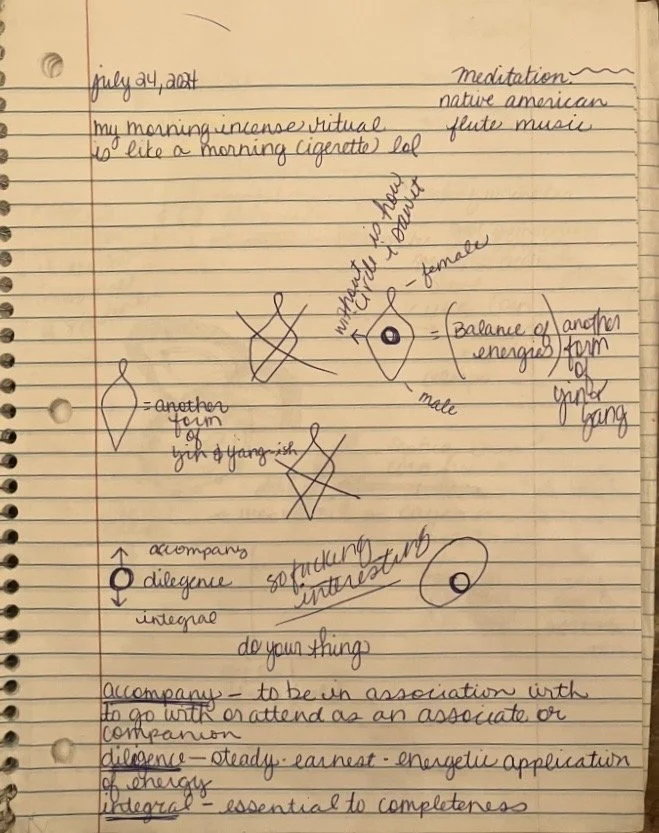 july 24, 2024
meditation
native american
flute music
my morning incense ritual
is like a morning cigerette lol
without
circle is how
i saw it
- female
= (Balance of
energies)
another
form
of
yin &
yang
- male
= another
form
of
yin & yang-ish
accompany
dilegence
integral
so fucking
interesting
do your thing
accompany - to be in association with
to go with or attend as an associate or
companion
diligence - steady · earnest · energetic application
of energy
integral - essential to completeness